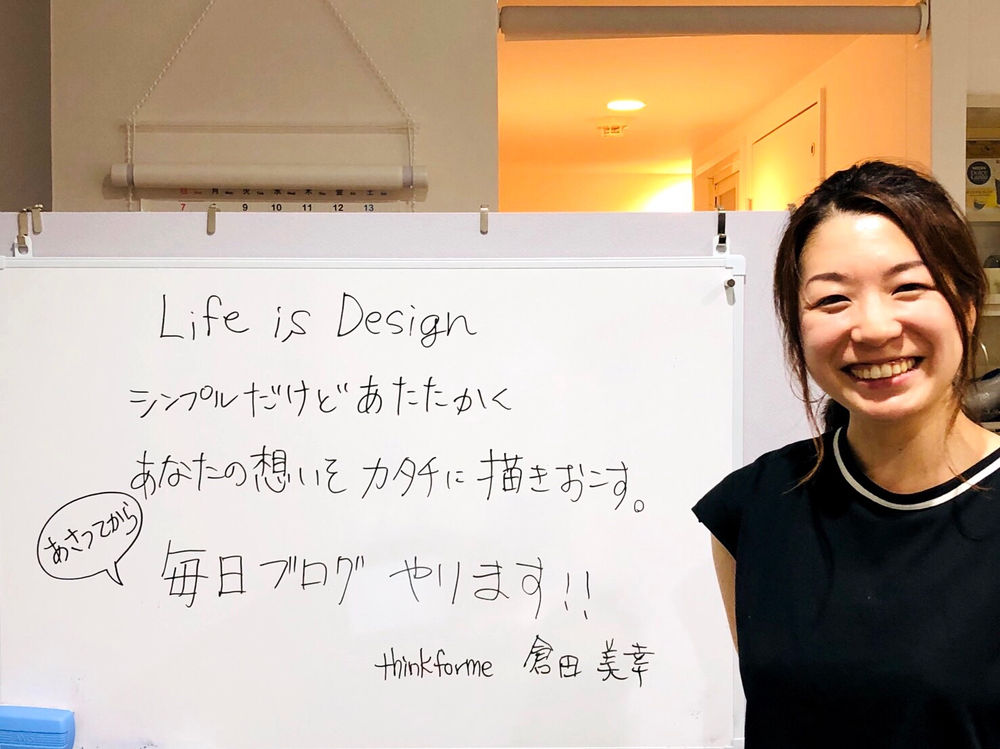 日 月 火 水 木 金 土
7 9 10 11 12 13
Life is Design
シンプルだけどあたたかく
あなたの想いを カタチに 描きおこす。
あさってから
毎日ブログ やります!!
thinkforme 倉田 美幸